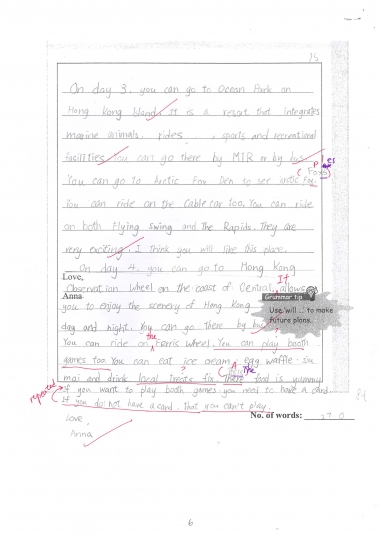 15
On day 3, you can go to Ocean Park on
Hong Kong Island. It is a resort that integrates
marine animals, rides , sports and recreational
facilities. You can go there by MTR or by bus.
P es
( Foxes )
You can go to Arctic Fox Den to see arctic Fox.
You can ride on the Cable car too. You can ride
on both Flying Swing and The Rapids. They are
very exciting. I think you will like this place.
On day 4, you can go to Hong Kong
Love,
Observation Wheel on the coast of Central, allows
It
Anna
you to enjoy the scenery of Hong Kong
Grammar tip
Use 'will ...' to make
future plans.
day and night. You can go there by bus.
You can ride on Ferris wheel. You can play booth
the
games too. You can eat ice cream, egg waffle, siu
mai and drink local treats fix there food is yummy.
? A The
repeated
If you want to play booth games you need to have a card.
If you do not have a card, that you can't play.
Love,
Anna
No. of words: 270
6